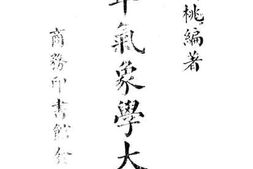 桃編著
氣象學大
商務印書館